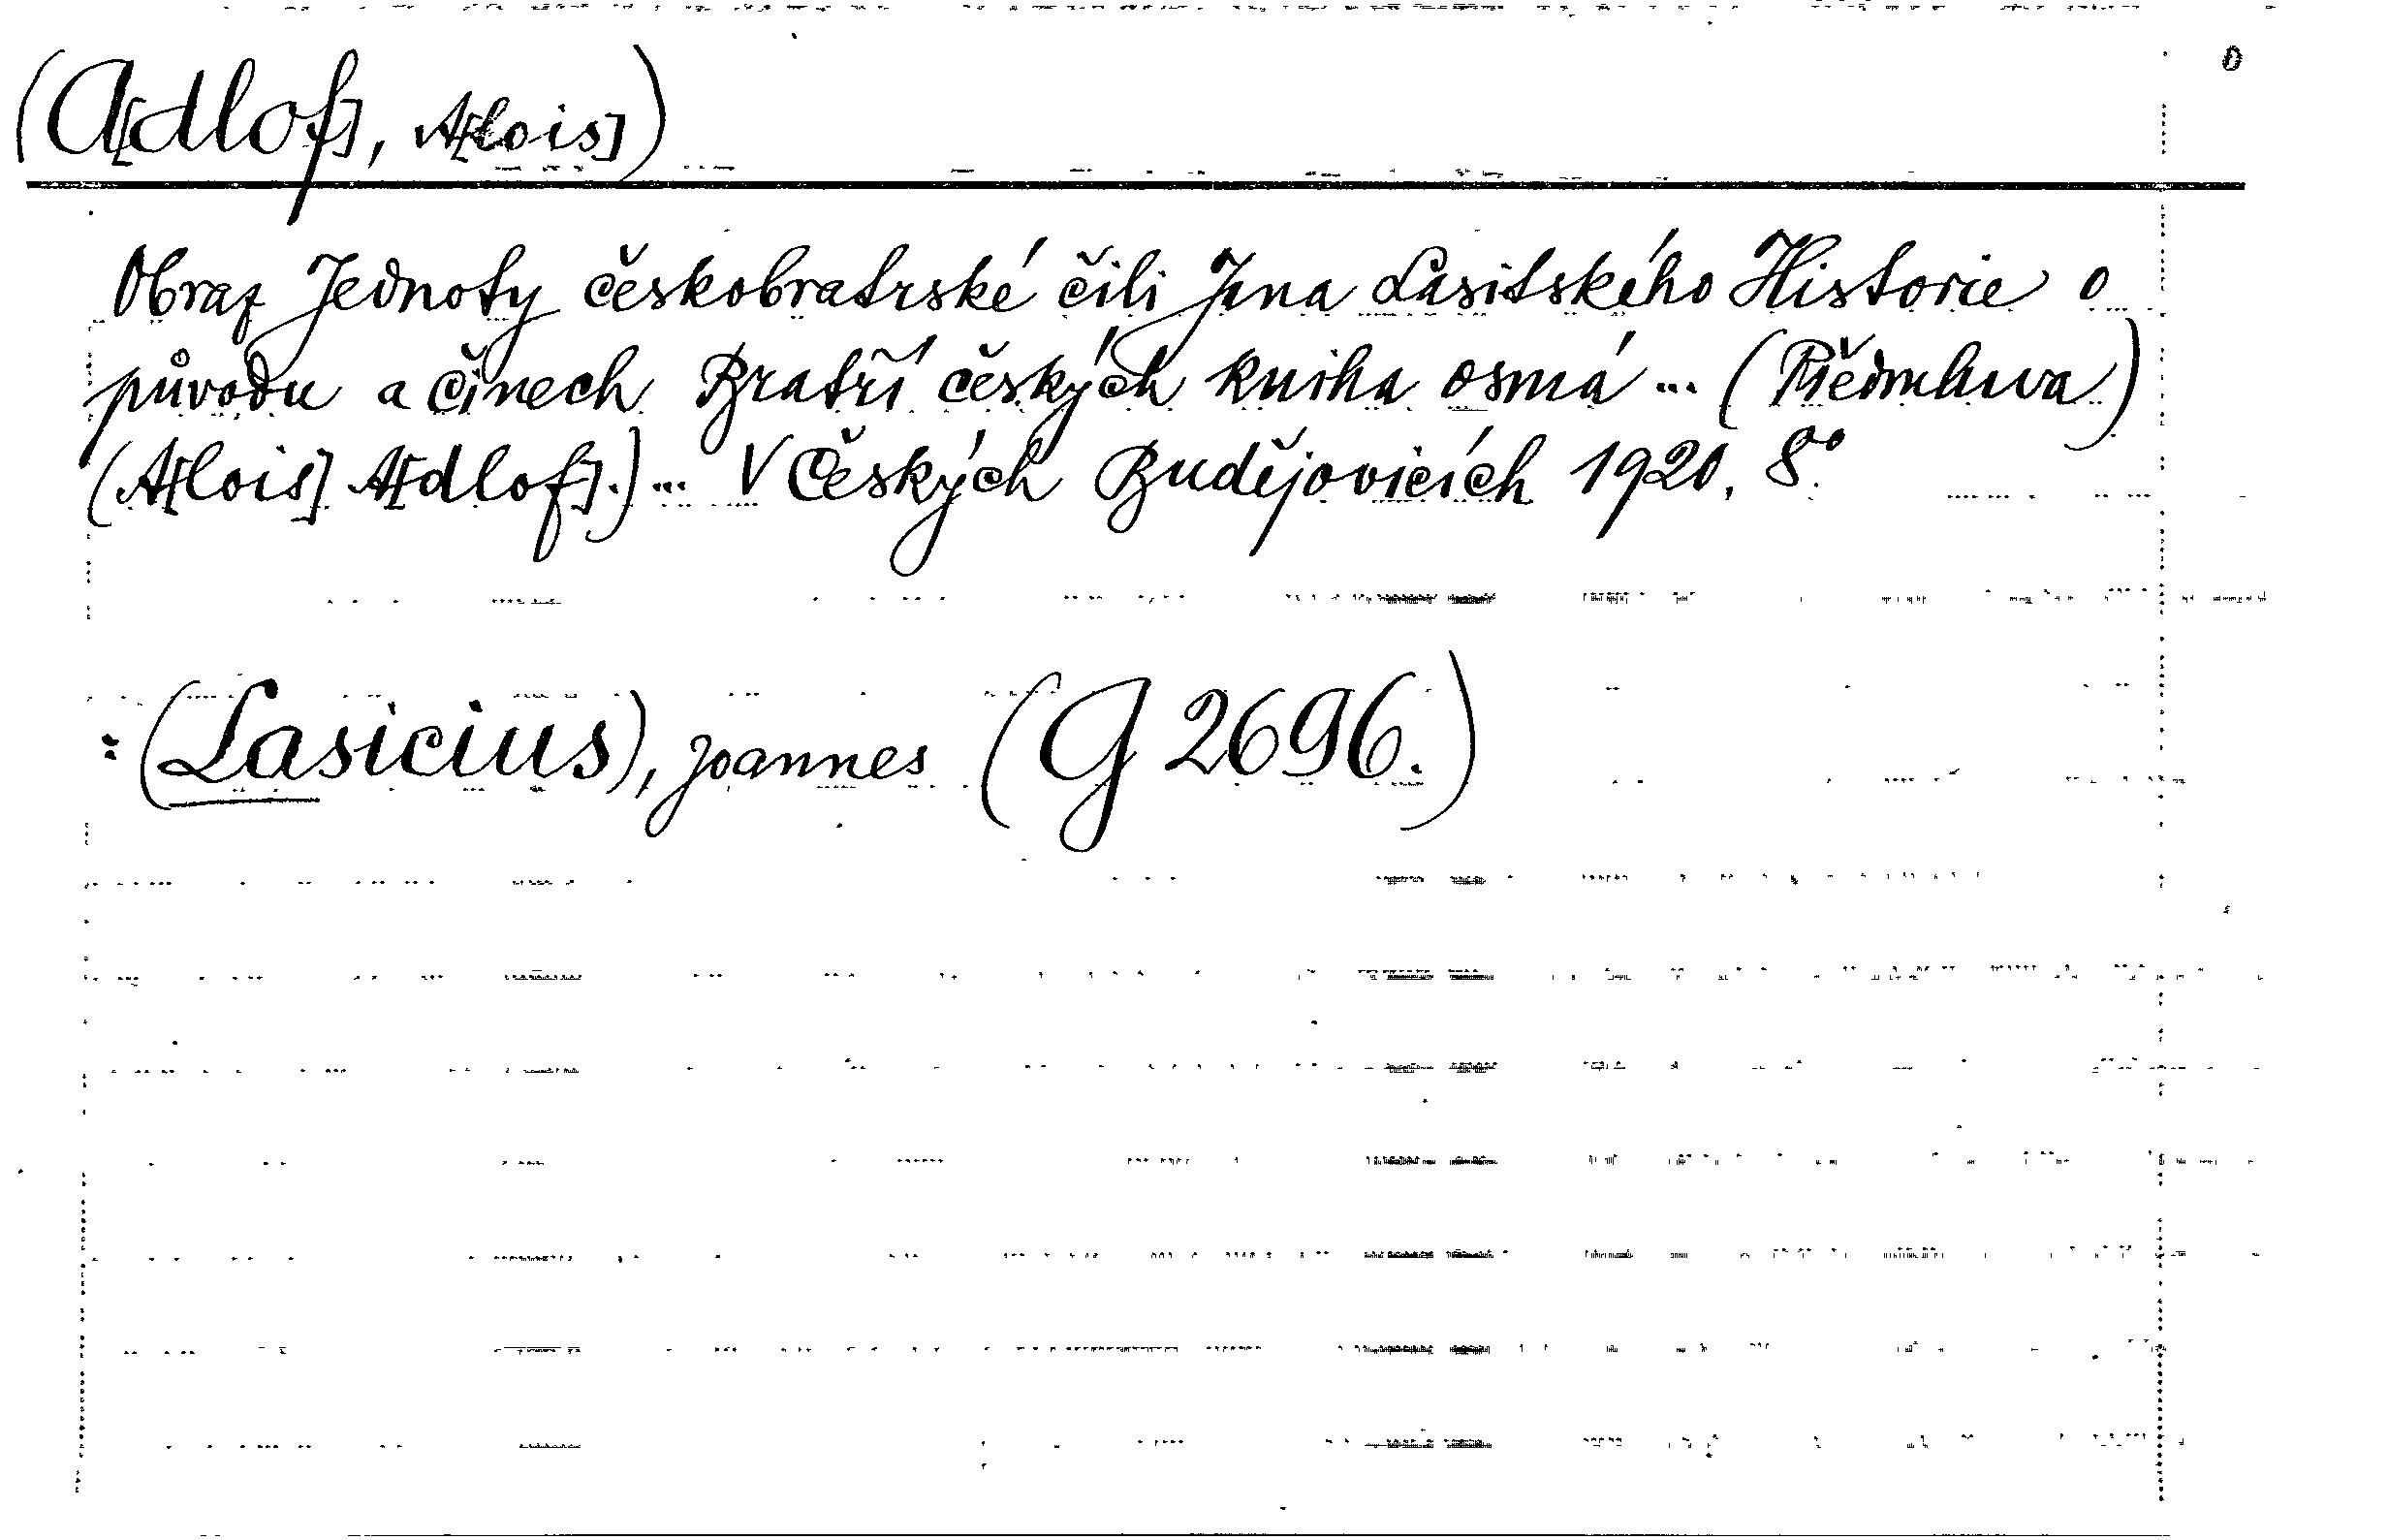 (A[dlof], A[lois])
Obraz Jednoty českobratrské čili Jana Lasitského Historie o
původu a činech Bratří českých kniha osmá ... (Předmluva)
(A[lois] A[dlof].) ... V Českých Budějovicích 1920. 8°.
: (Lasicius), Joannes (G 2696.)